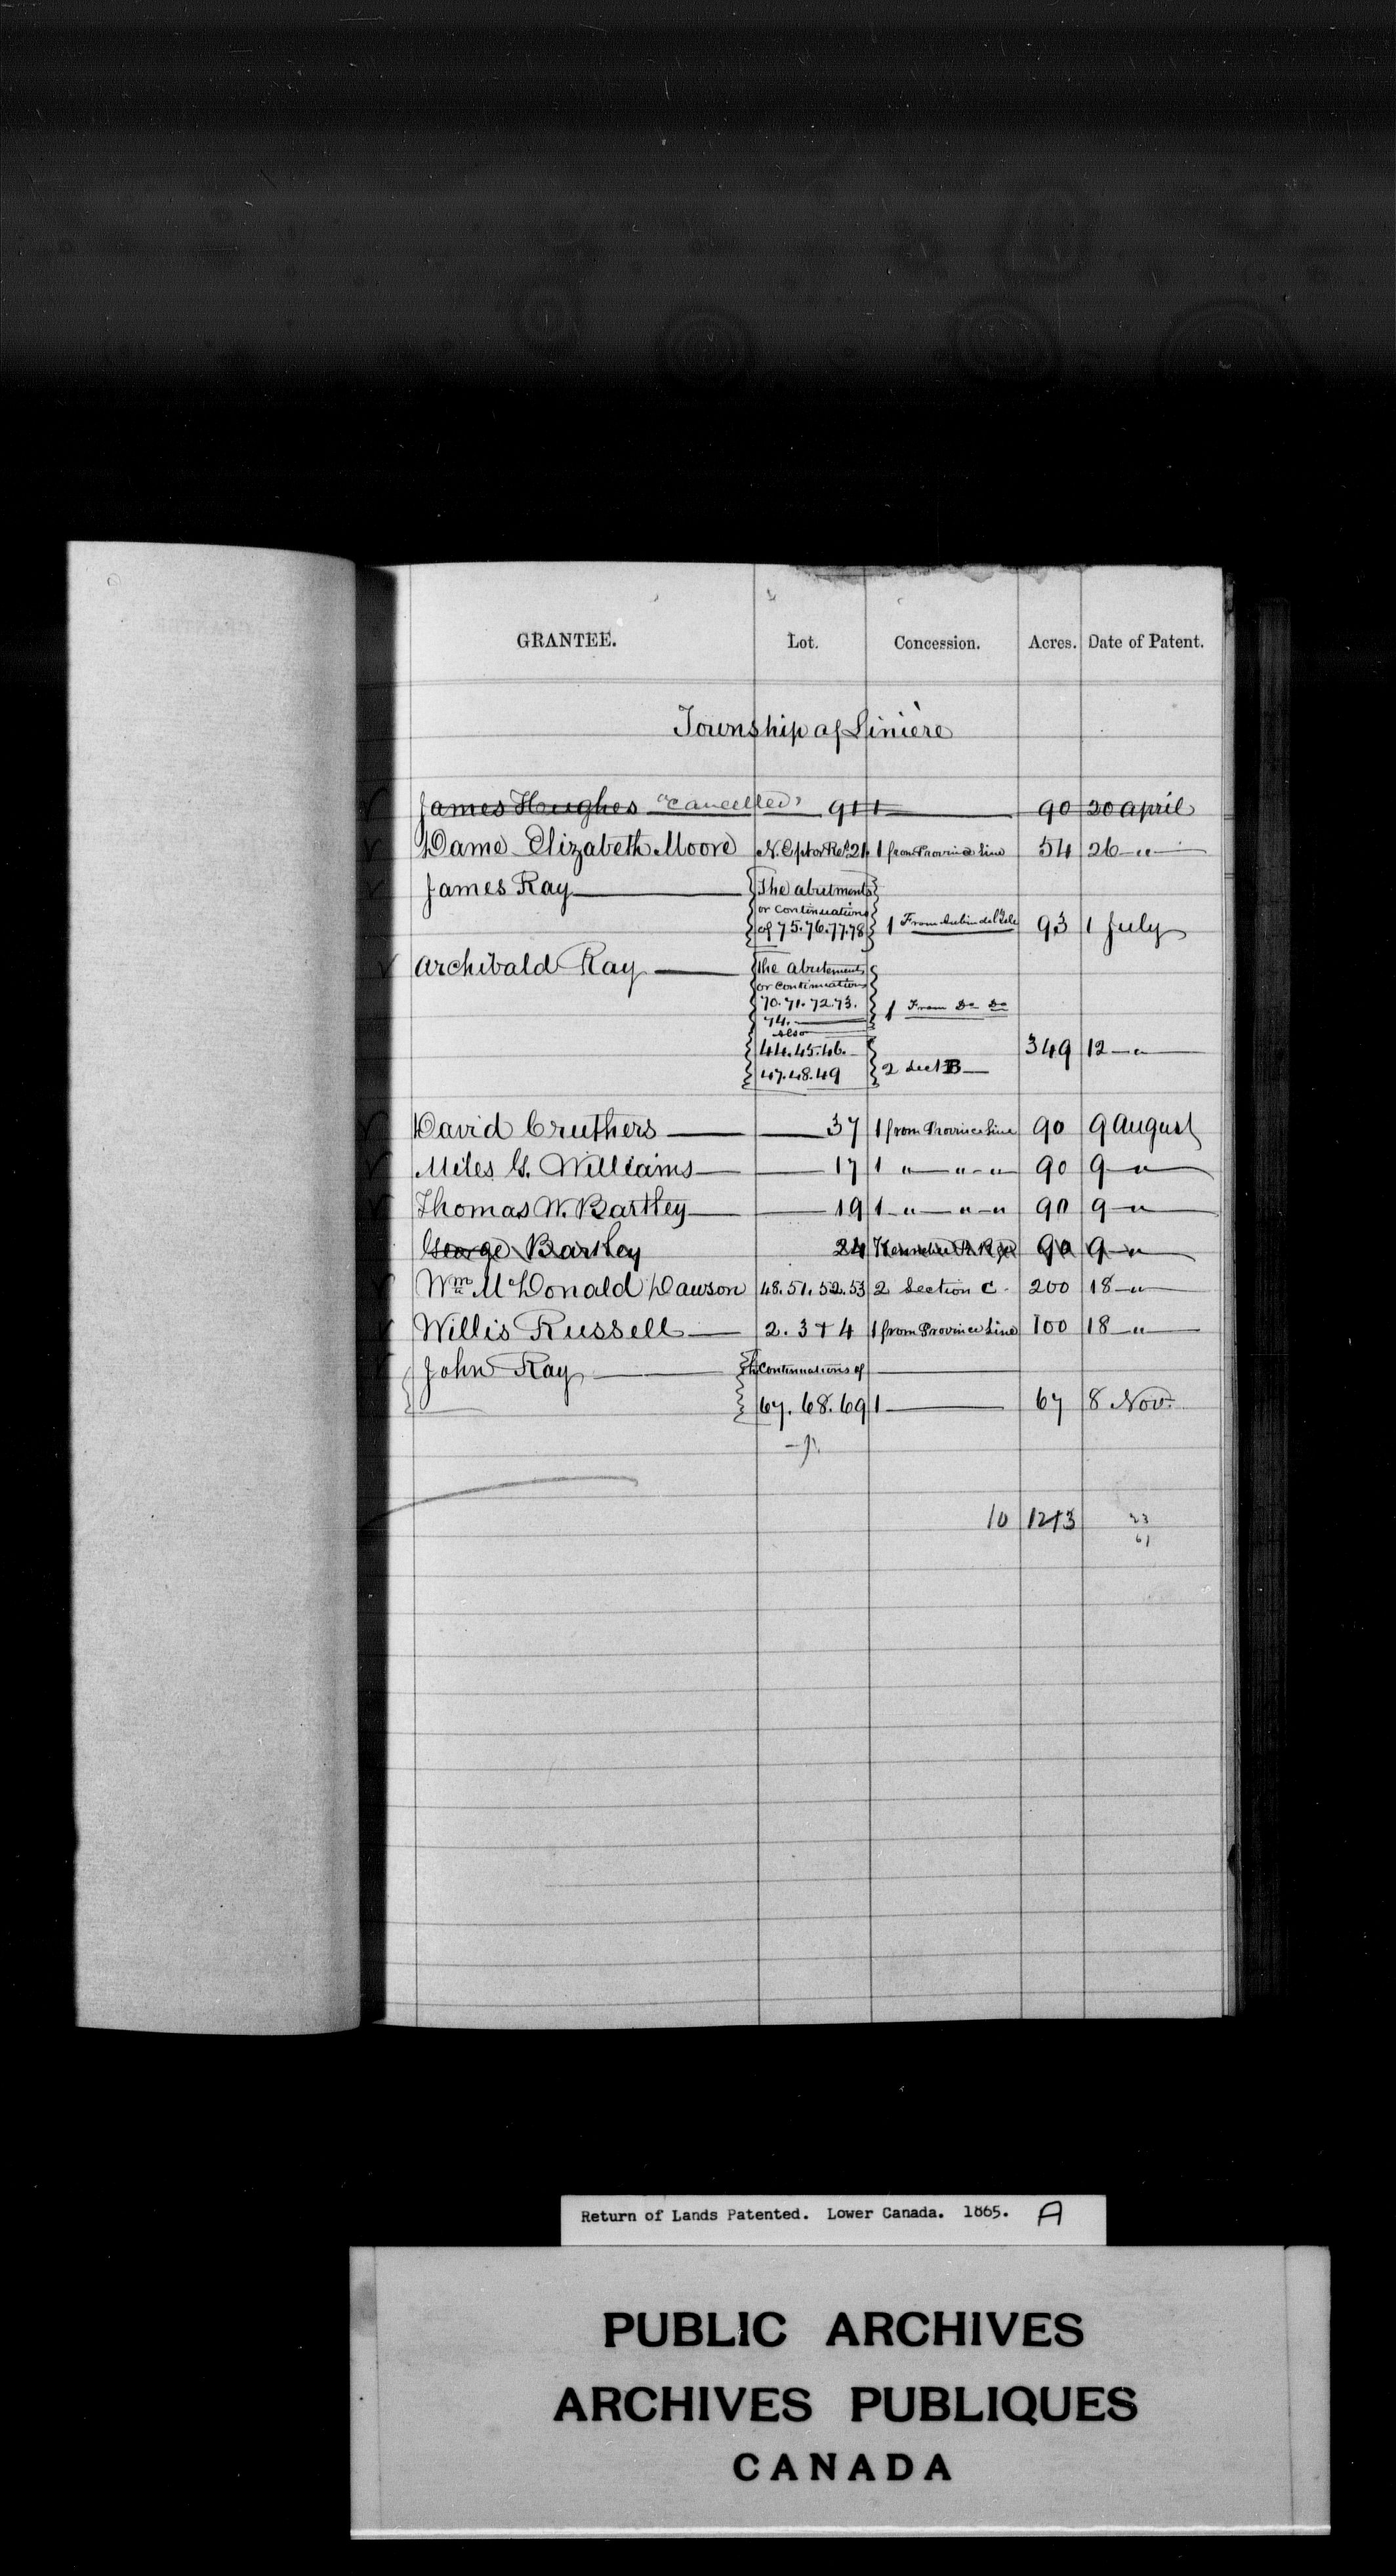 GRANTEE. Lot. Concession. Acres. Date of Patent.
Township of Linière
James Hughes "Cancelled" 91 1 90 20 April
Dame Elizabeth Moore N. E pt or Rest 21 1 from Province Line 54 26 〃
James Ray The abutments
or continuations
of 75. 76. 77. 78 1 From 93 1 July
Archibald Ray The abutements
or continuations
70. 71. 72. 73. 1 From Do Do
74.
Also
44. 45. 46. 349 12 〃
47. 48. 49 2 Sect B
David Cruthers 37 1 from Province Line 90 9 August
Miles G. Williams 17 1 〃 〃 〃 90 9 〃
Thomas W. Bartley 19 1 〃 〃 〃 90 9 〃
George Bartley 24 90 9 〃
Wm McDonald Dawson 48. 51. 52. 53 2 Section C. 200 18 〃
Willis Russell 2. 3 + 4 1 from Province Line 100 18 〃
John Ray The Continuations of
67. 68. 69 1 67 8 Nov.
10 1213 23
61
Return of Lands Patented. Lower Canada. 1865. A
PUBLIC ARCHIVES
ARCHIVES PUBLIQUES
CANADA